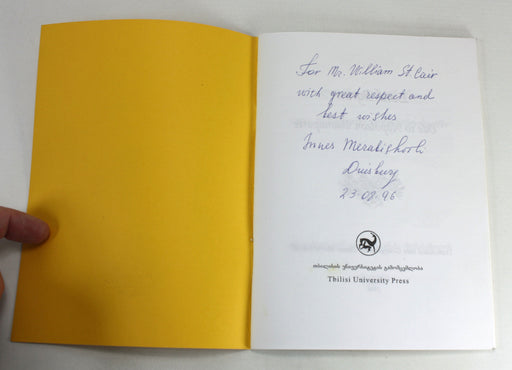 For Mr. William St Clair
with great respect and
best wishes
Innes Merabishvili
Duisburg
23-08-96
თბილისის უნივერსიტეტის გამომცემლობა
Tbilisi University Press